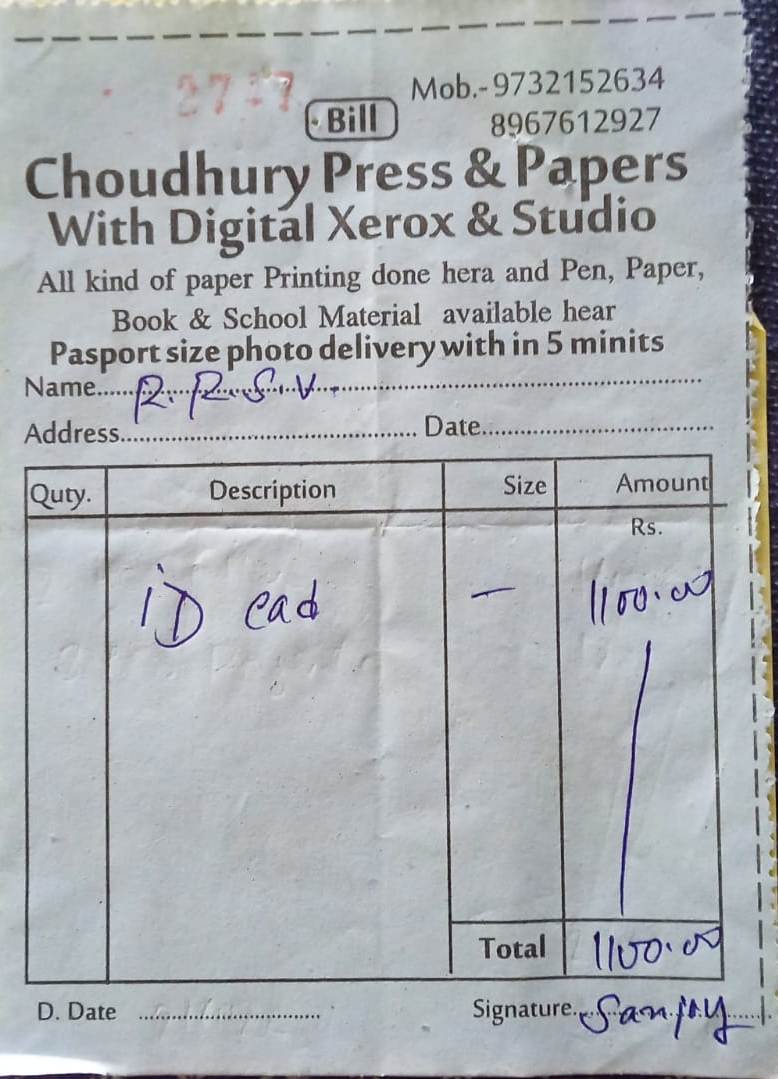 Mob.-9732152634
Bill
8967612927
Choudhury Press & Papers
With Digital Xerox & Studio
All kind of paper Printing done hera and Pen, Paper,
Book & School Material available hear
Pasport size photo delivery with in 5 minits
Name......R.R.S.V.
Address.......... Date..........
Quty. Description Size Amount
Rs.
ID cad - 1100.00
Total 1100.00
D. Date .......... Signature..Sanjoy